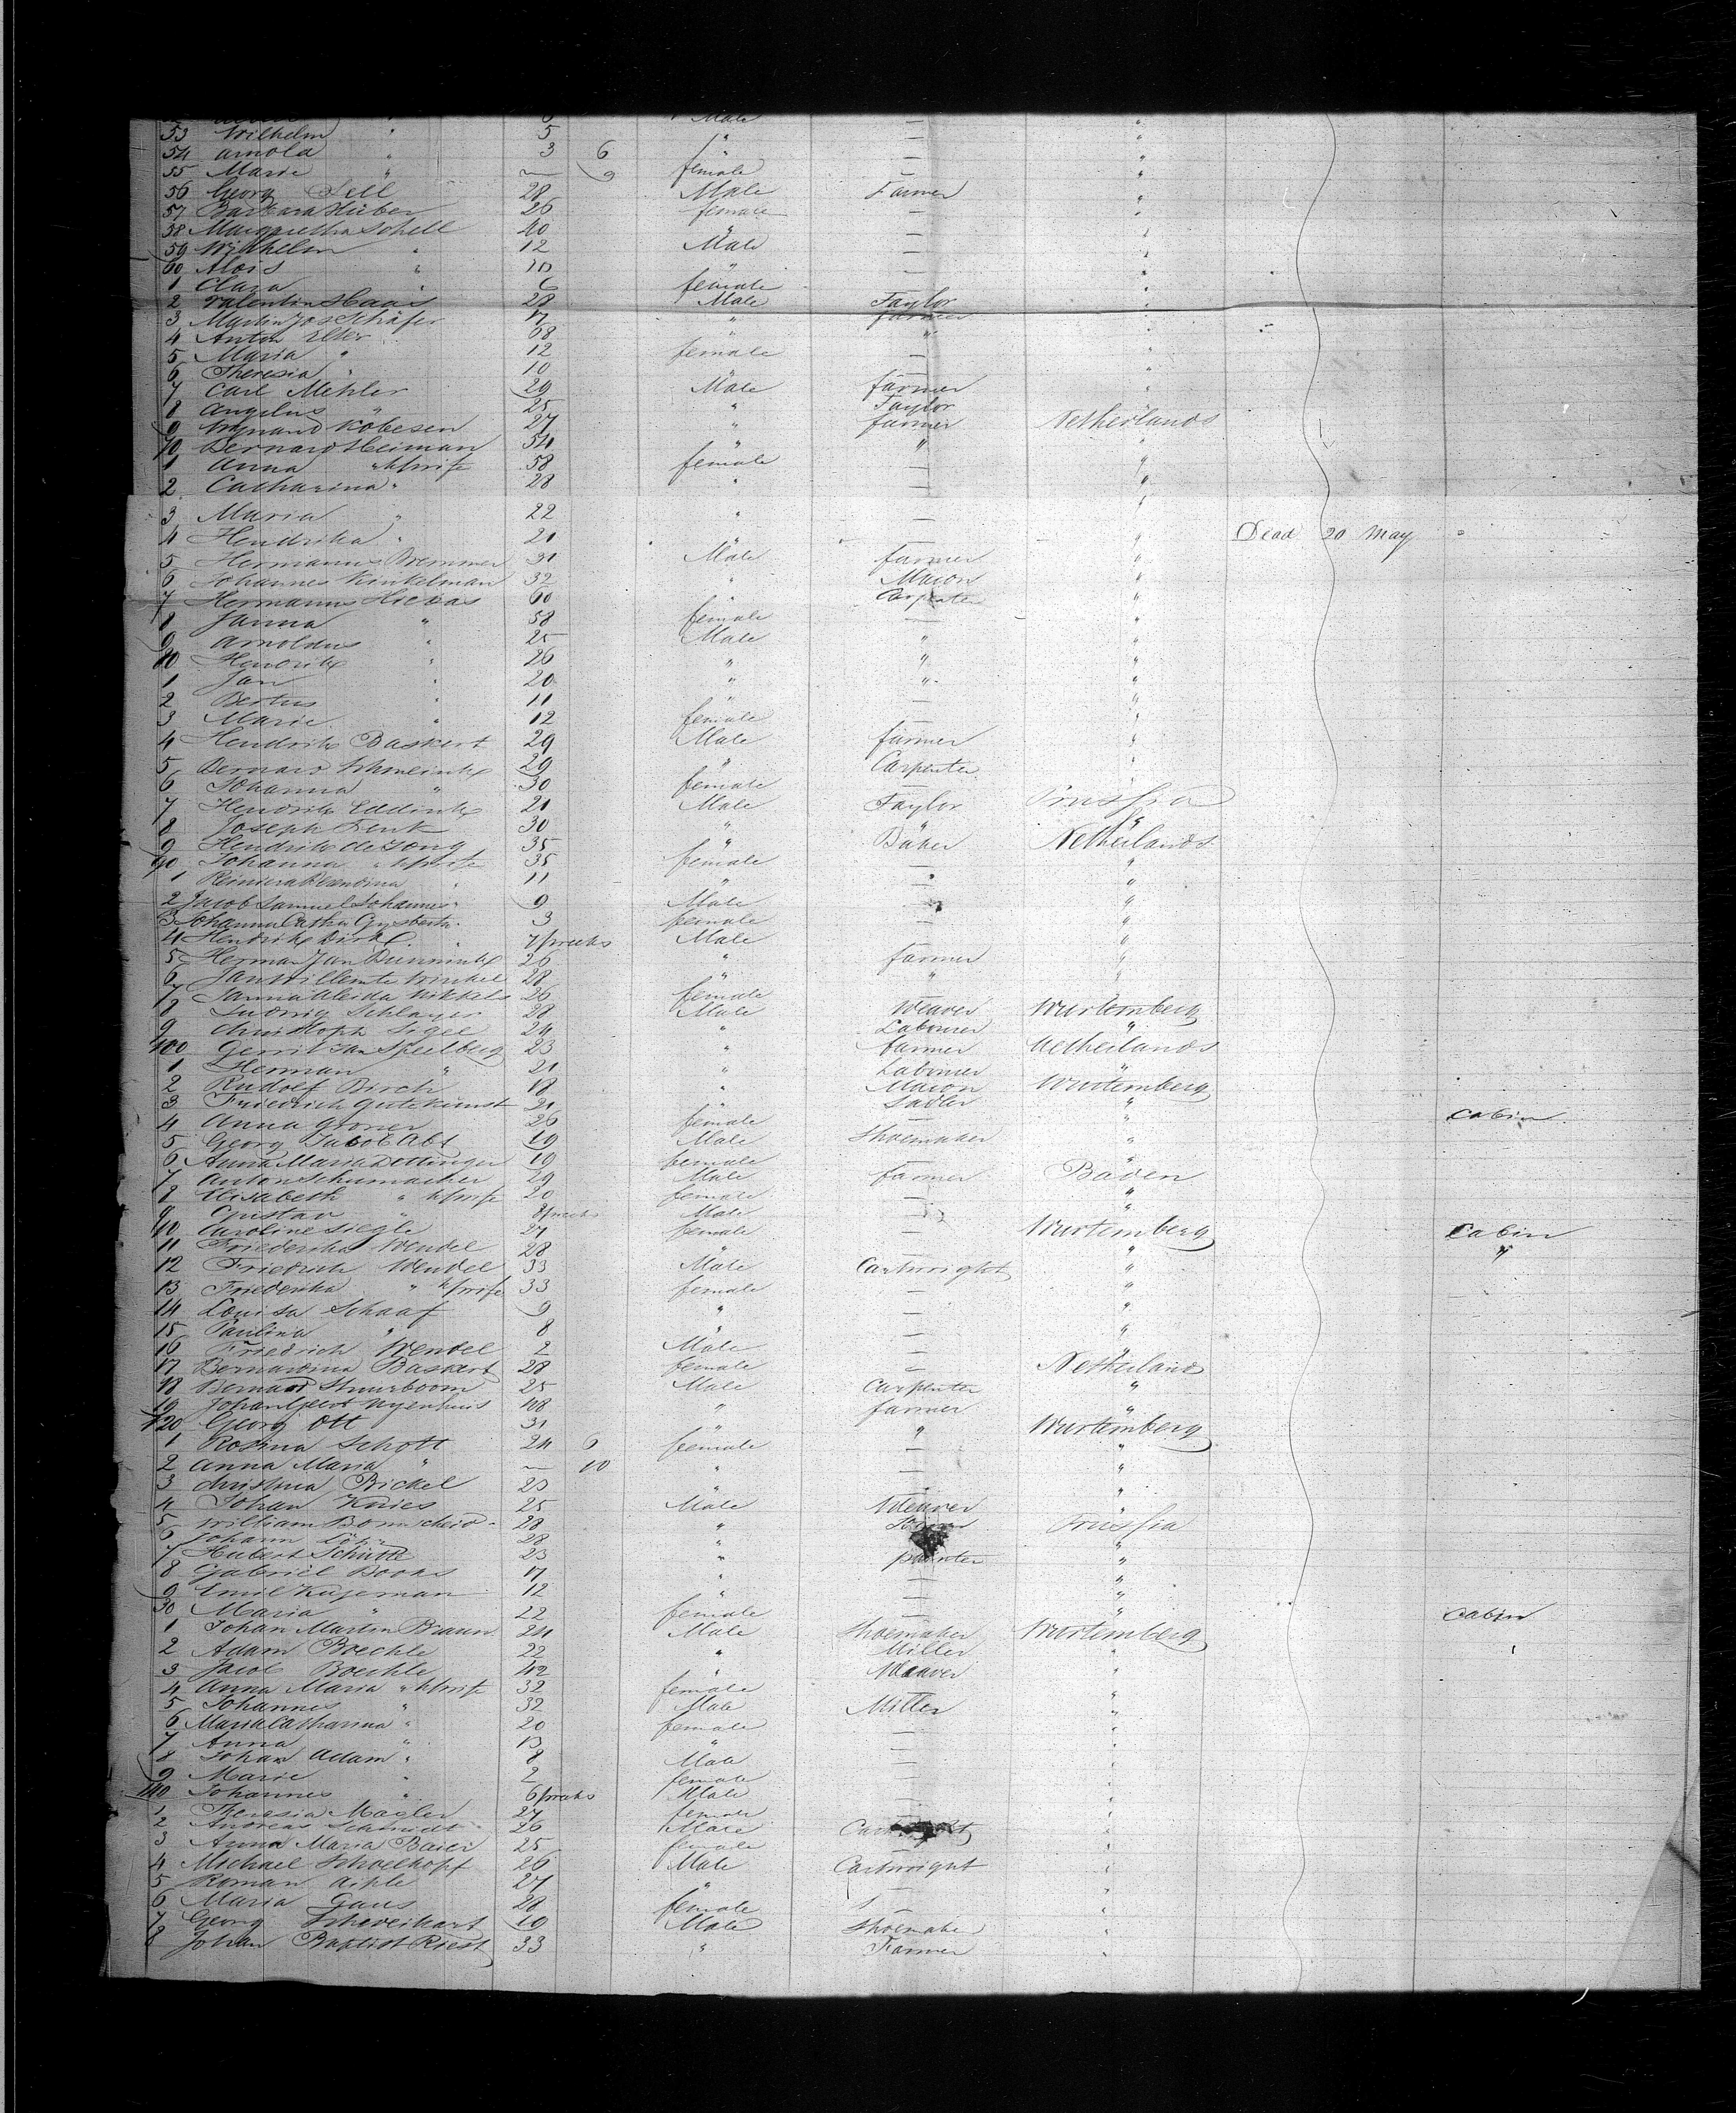 Male —
53 Wilhelm " 5 " — "
54 Arnold " 3 6 " — "
55 Marie " — 9 female — "
56 Georg Sell 28 Male Farmer "
57 Barbara Huber 26 female — "
58 Margaretha Schell 40 " — "
59 Wilhelm " 12 Male — "
60 Alois " 10 " — "
1 Clara " 6 female — "
2 Valentin Haas 28 Male Taylor "
3 Martin Jos Schäfer 17 " farmer "
4 Anton Elter 68 " " "
5 Maria " 12 female — "
6 Theresia " 10 " — "
7 Carl Mehler 29 Male farmer "
8 Angelus " 25 " Taylor "
9 Wynand Kobesen 27 " farmer Netherlands
70 Bernard Heiman 54 " " "
1 Anna " h/wife 58 female — "
2 Catharina " 28 " — "
3 Maria " 22 " — "
4 Hendrika " 21 " — " Dead 20 May
5 Hermanus Bremmer 31 Male farmer "
6 Johannes Kinkelman 32 " Mason "
7 Hermanus 60 " Carpenter "
8 Janna " 58 female — "
9 Arnoldus " 25 Male " "
80 Hendrik " 26 " " "
1 Jan " 20 " " "
2 Bertus " 11 " — "
3 Marie " 12 female — "
4 Hendrik Baskert 29 Male farmer "
5 Bernard 29 " Carpenter "
6 Johanna " 30 female — "
7 Hendrik Eddink 21 Male Taylor Prussia
8 Joseph Fenk 30 " " "
9 Hendrik de Jong 35 " Baker Netherlands
90 Johanna " h/wife 35 female — "
1 " 11 " — "
2 Jacob Samuel Johannes " 9 Male — "
3 Johanna Catha Gysberta 3 female — "
4 Hendrik Dirk " 7/weeks Male "
5 Herman Jan 26 " farmer "
6 Jan Willem te Winkel 28 " " "
7 Janna Aleida 26 female — "
8 Ludwig Schlayer 28 Male Weaver Wurtemberg
9 Christoph Sigle 24 " Labourer "
100 Gerrit Jan Speelberg 23 " farmer Netherlands
1 Herman " 21 " Labourer "
2 Rudolf Birch 18 " Mason Wurtemberg
3 Friedrich Gutekunst 21 " Sadler "
4 Anna Groner 26 female — " Cabin
5 Georg Jacob Abt 19 Male Shoemaker "
6 Anna Maria Dettinger 19 female — "
7 Anton Schumacher 29 Male farmer Baden
8 Elisabeth " h/wife 20 female — "
9 Gustav " 8/weeks Male — "
110 Caroline Siegle 27 female — Wurtemberg Cabin
11 Friederika Wendel 28 " " "
12 Friedrich Wendel 33 Male Cartwright "
13 Friederika " h/wife 33 female — "
14 Louisa Schaaf 9 " — "
15 Paulina " 8 " — "
16 Friedrich Wendel 2 Male — "
17 Bernardina Baskert 28 female — Netherland
18 Bernard Stuurboom 25 Male Carpenter "
19 Johan Geert Nyenhuis 48 " farmer "
120 Georg Ott 31 " " Wurtemberg
1 Rosina Schott 24 6 female — "
2 Anna Maria " — 10 " — "
3 Christina Bickel 23 " — "
4 Johan Knies 25 Male Weaver "
5 William 28 " Prussia
6 Johann 28 " "
7 Hubert Schütte 23 " painter "
8 Gabriel Books 17 " — "
9 Emil Kugeman 12 " — "
30 Maria " 22 female — " Cabin
1 Johan Martin Braun 24 Male Shoemaker Wurtemberg
2 Adam Boechle 22 " Miller "
3 Jacob Boechle 42 " Weaver "
4 Anna Maria " h/wife 32 female — "
5 Johannes " 32 Male Miller "
6 Maria Catharina " 20 female — "
7 Anna " 13 " — "
8 Johan Adam " 8 Male — "
9 Marie " 2 female — "
140 Johannes " 6/weeks Male — "
1 Theresia Magler 27 female — "
2 Andreas Schmidt 26 Male "
3 Anna Maria Baier 25 female — "
4 Michael Schoelkopf 26 Male Cartwright "
5 Roman Aiple 27 " — "
6 Maria Gaus 28 female — "
7 Georg Schweikart 19 Male Shoemaker "
8 Johan Baptist Riest 33 " Farmer "